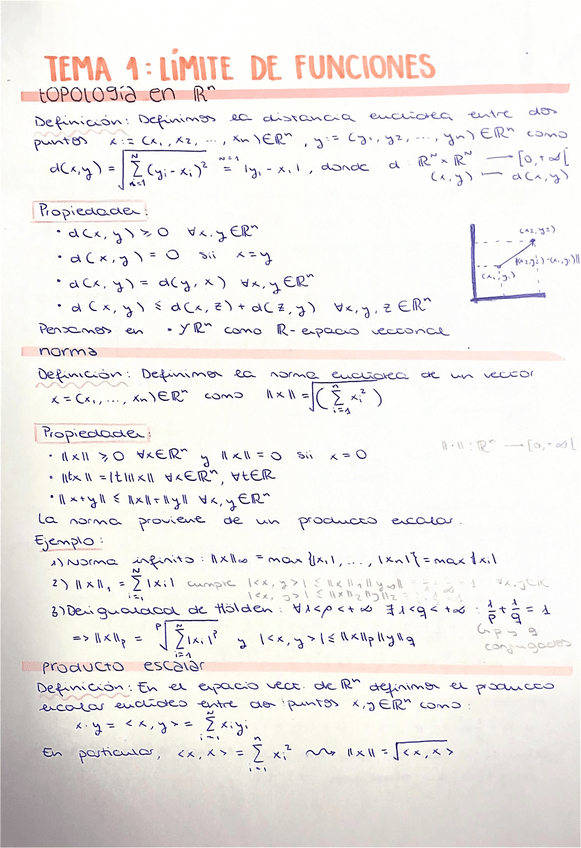 TEMA 1: LÍMITE DE FUNCIONES
topología en ℝⁿ
Definición: Definimos la distancia euclídea entre dos
puntos x := (x₁, x₂, ..., xₙ) ∈ ℝⁿ, y := (y₁, y₂, ..., yₙ) ∈ ℝⁿ como
d(x,y) = √(∑ (yᵢ - xᵢ)²) = |y₁ - x₁|, donde d : ℝᴺ × ℝᴺ → [0,+∞[
(x,y) → d(x,y)
Propiedades:
· d(x,y) ≥ 0 ∀x,y ∈ ℝⁿ
· d(x,y) = 0 sii x = y
· d(x,y) = d(y,x) ∀x,y ∈ ℝⁿ
· d(x,y) ≤ d(x,z) + d(z,y) ∀x,y,z ∈ ℝⁿ
(x₂,y₂)
(x₁,y₁)
Pensamos en · y ℝⁿ como ℝ-espacio vectorial
norma
Definición: Definimos la norma euclídea de un vector
x = (x₁, ..., xₙ) ∈ ℝⁿ como ||x|| = √(∑ᵢ₌₁ⁿ xᵢ²)
Propiedades:
||·|| : ℝⁿ → [0,+∞[
· ||x|| ≥ 0 ∀x ∈ ℝⁿ y ||x|| = 0 sii x = 0
· ||tx|| = |t| ||x|| ∀x ∈ ℝⁿ, ∀t ∈ ℝ
· ||x+y|| ≤ ||x|| + ||y|| ∀x,y ∈ ℝⁿ
La norma proviene de un producto escalar.
Ejemplo:
1) Norma infinito: ||x||∞ = max{|x₁|, ..., |xₙ|} = max|xᵢ|
2) ||x||₁ = ∑ᵢ₌₁ᴺ |xᵢ| cumple |<x,y>| ≤ ||x||₁ ||y||∞
|<x,y>| ≤ ||x||₂ ||y||₂
3) Desigualdad de Hölden: ∀1<p<+∞ ∃1<q<+∞ : 1/p + 1/q = 1
↳ p y q
conjugados
=> ||x||ₚ = ᵖ√(∑ᵢ₌₁ᴺ |xᵢ|ᵖ) y |<x,y>| ≤ ||x||p ||y||q
producto escalar
Definición: En el espacio vect. de ℝⁿ definimos el producto
escalar euclídeo entre dos puntos x,y ∈ ℝⁿ como:
x·y = <x,y> = ∑ᵢ₌₁ⁿ xᵢyᵢ
En particular, <x,x> = ∑ᵢ₌₁ⁿ xᵢ² ⇝ ||x|| = √<x,x>